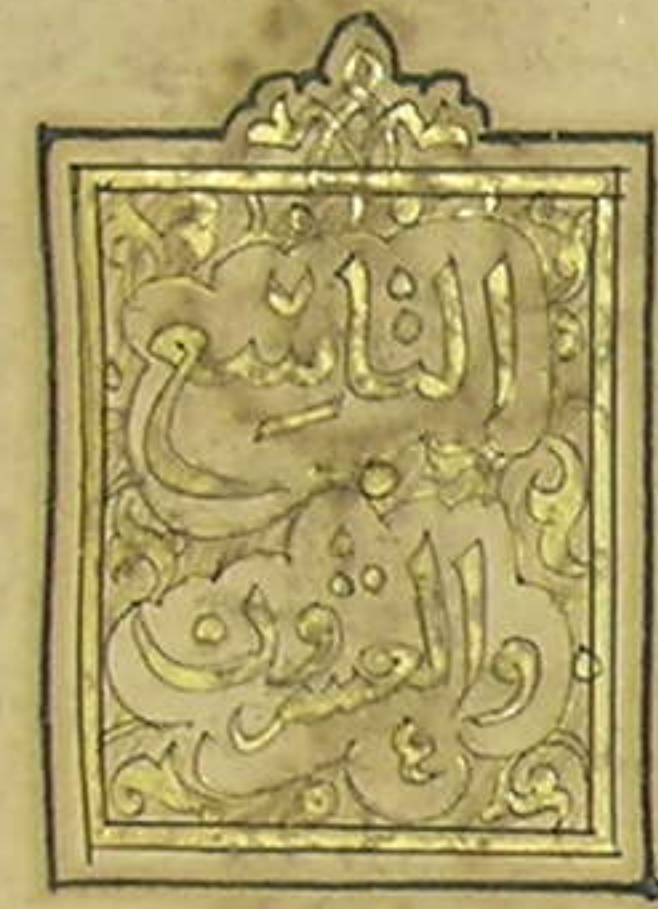 التاسِع
والعشرون